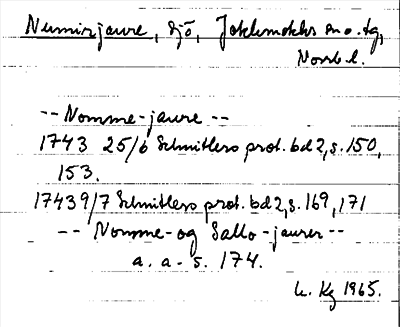 Numirjaure, sjö, Jokkmokks sn o. tg,
Norrb. l.
-- Nomme-jaure --
1743 25/6 Schnitlers prot. bd 2, s. 150,
153.
1743 9/7 Schnitlers prot. bd 2, s. 169, 171
-- Nomme- og Sallo-jaurer --
a. a. s. 174.
L. Kg 1965.